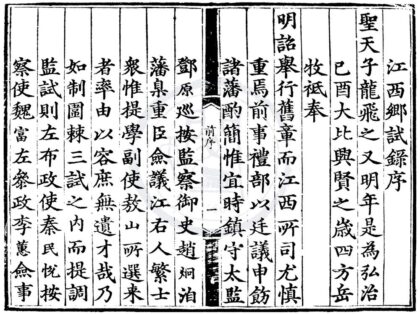 江西鄉試錄序
聖天子龍飛之又明年是為弘治
己酉大比興賢之歲四方岳
牧祗奉
明詔舉行舊章而江西所司尤慎
重焉前事禮部以廷議申飭
諸藩酌簡惟宜時鎮守太監
前序
一
鄧原巡按監察御史趙炯洎
藩臬重臣僉議江右人繁士
衆惟提學副使敖山所選來
者率由以容庶無遺才哉乃
如制圍棘三試之內而提調
監試則左布政使秦民悅按
察使魏富左參政李蕙僉事